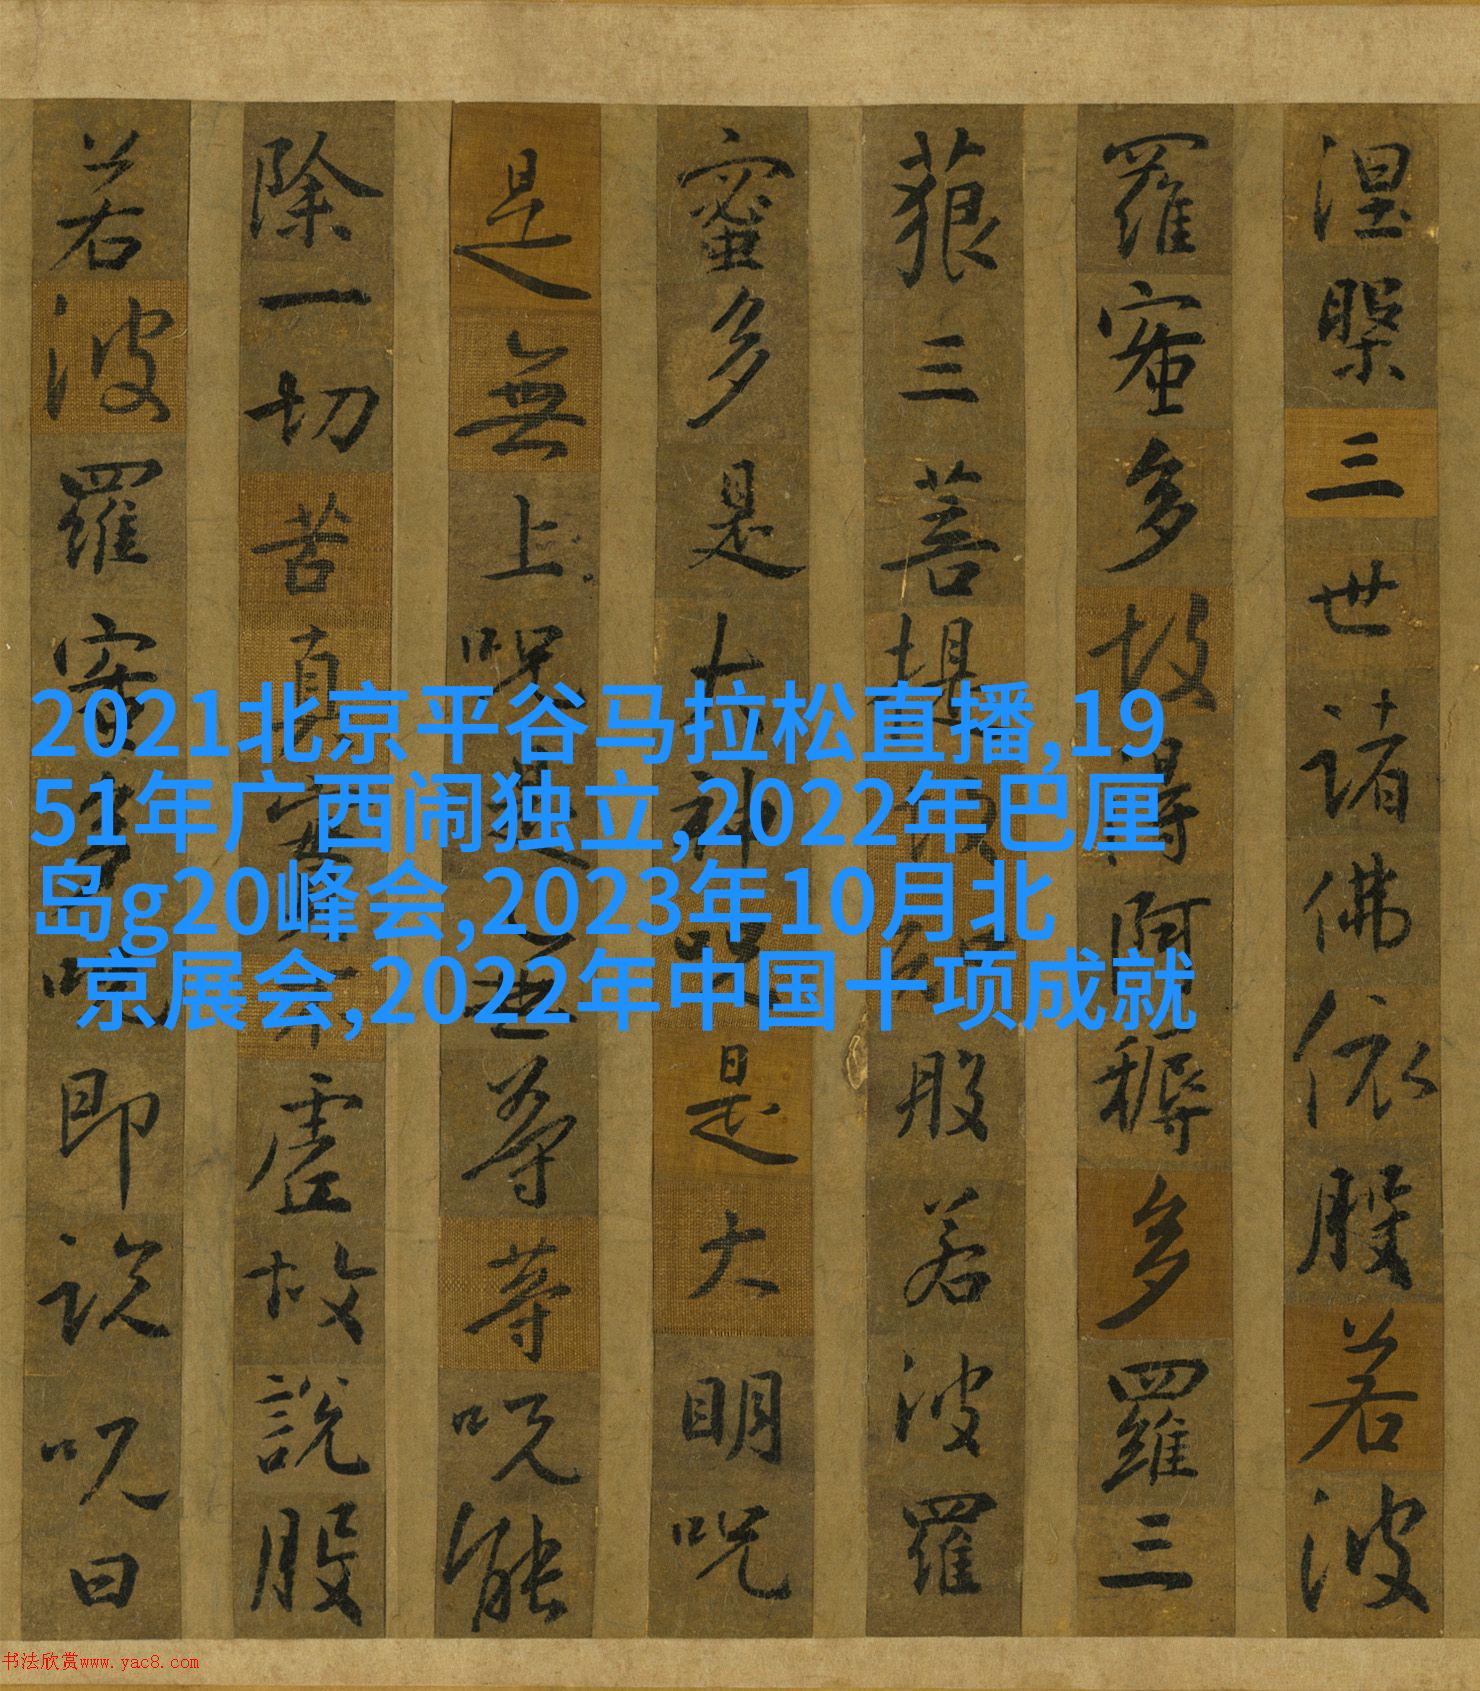 涅槃三世諸佛依般若波
羅蜜多故得阿耨多羅三
藐三菩提般若波羅
蜜多是大神咒是大明咒
是無上咒是無等等咒能
除一切苦真實不虛故說般
若波羅蜜多咒即說咒曰
2021北京平谷马拉松直播,19
51年广西闹独立,2022年巴厘
岛g20峰会,2023年10月北
京展会,2022年中国十项成就
书法欣赏www.yac8.com